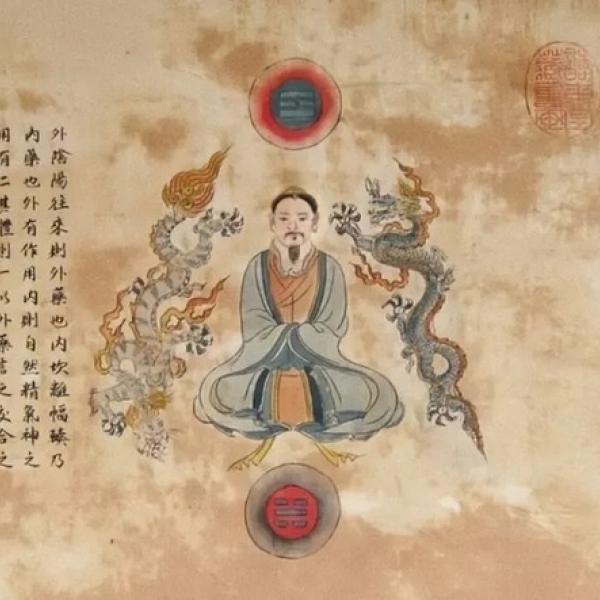 外陰陽往來則外藥也內坎離幅臻乃
內藥也外有作用內則自然精氣神之
用有二其體則一以外藥言之交合之